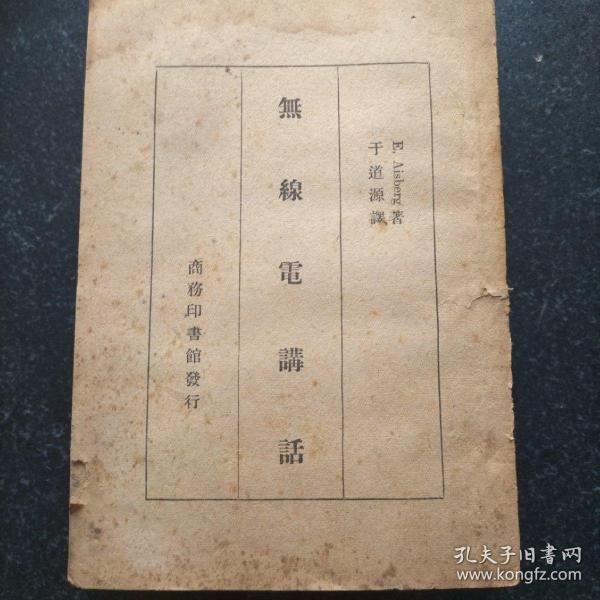 E. Aisberg 著
于道源譯
無線電講話
商務印書館發行
孔夫子旧书网
www.kongfz.com